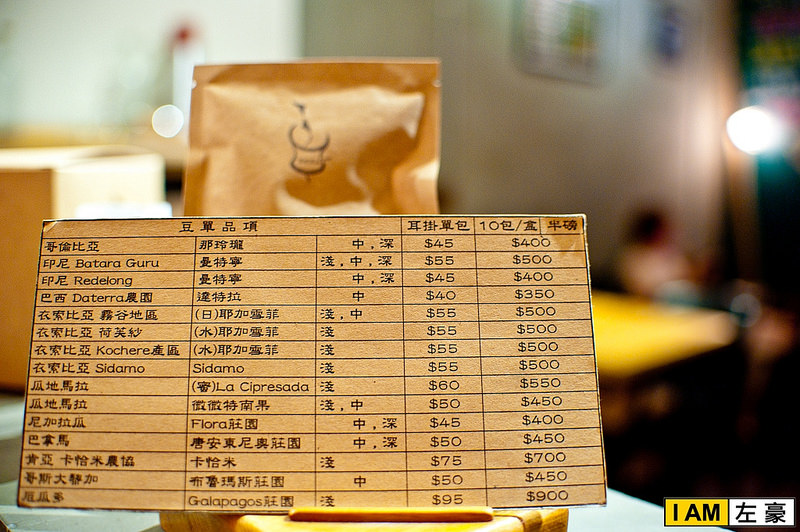 豆單品項 耳掛單包 10包/盒 半磅
哥倫比亞 那玲瓏 中,深 $45 $400
印尼 Batara Guru 曼特寧 淺,中,深 $55 $500
印尼 Redelong 曼特寧 中,深 $45 $400
巴西 Daterra農園 達特拉 中 $40 $350
衣索比亞 霧谷地區 (日)耶加雪菲 淺,中 $55 $500
衣索比亞 荷芙紗 (水)耶加雪菲 淺 $55 $500
衣索比亞 Kochere產區 (水)耶加雪菲 淺 $55 $500
衣索比亞 Sidamo Sidamo 淺 $55 $500
瓜地馬拉 (蜜)La Cipresada 淺 $60 $550
瓜地馬拉 微微特南果 淺,中 $50 $450
尼加拉瓜 Flora莊園 中,深 $45 $400
巴拿馬 唐安東尼奧莊園 中,深 $50 $450
肯亞 卡恰米農協 卡恰米 淺 $75 $700
哥斯大黎加 布魯瑪斯莊園 中 $50 $450
厄瓜多 Galapagos莊園 淺 $95 $900
I AM 左豪